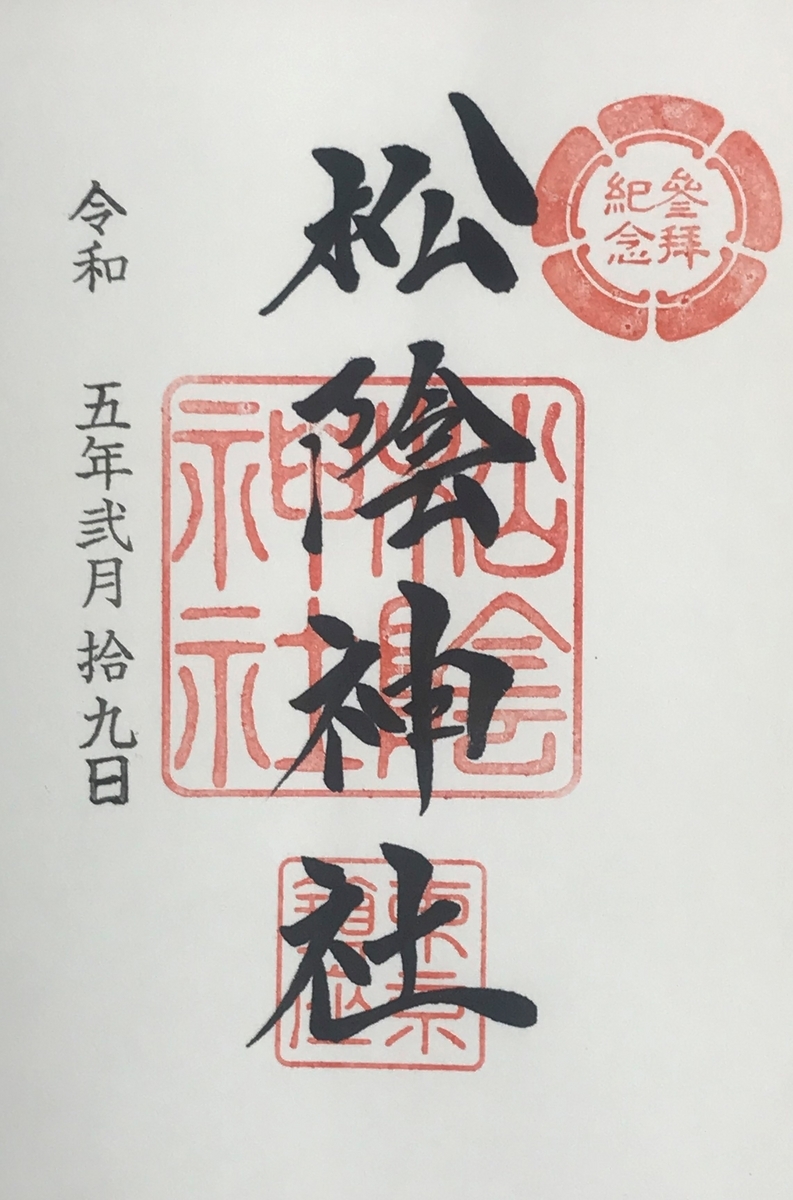 參拜
紀念
松陰神社
松陰
神社
東京
令和 五年弐月拾九日